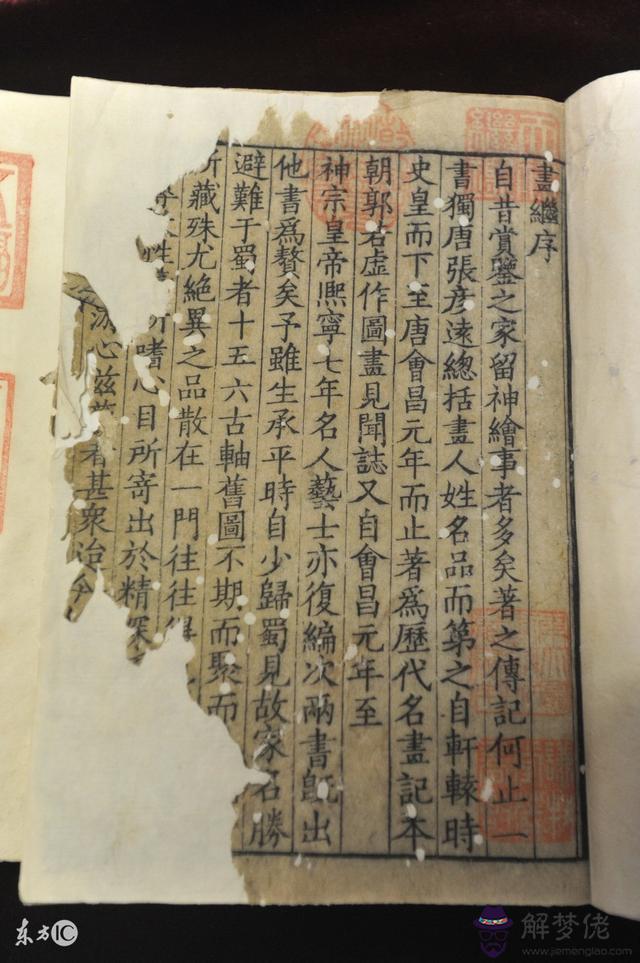 畫繼序
自昔賞鑒之家留神繪事者多矣著之傳記何止一
書獨唐張彥遠總括畫人姓名品而第之自軒轅時
史皇而下至唐會昌元年而止著爲歷代名畫記本
朝郭若虛作圖畫見聞誌又自會昌元年至
神宗皇帝熙寧七年名人藝士亦復編次兩書既出
他書爲贅矣予雖生承平時自少歸蜀見故家名勝
避難于蜀者十五六古軸舊圖不期而聚而
所藏殊尤絕異之品散在一門往往得
性所嗜心目所寄出於精深
游心茲藝者甚衆迨今
东方IC
解梦佬
www.jiemenglao.com